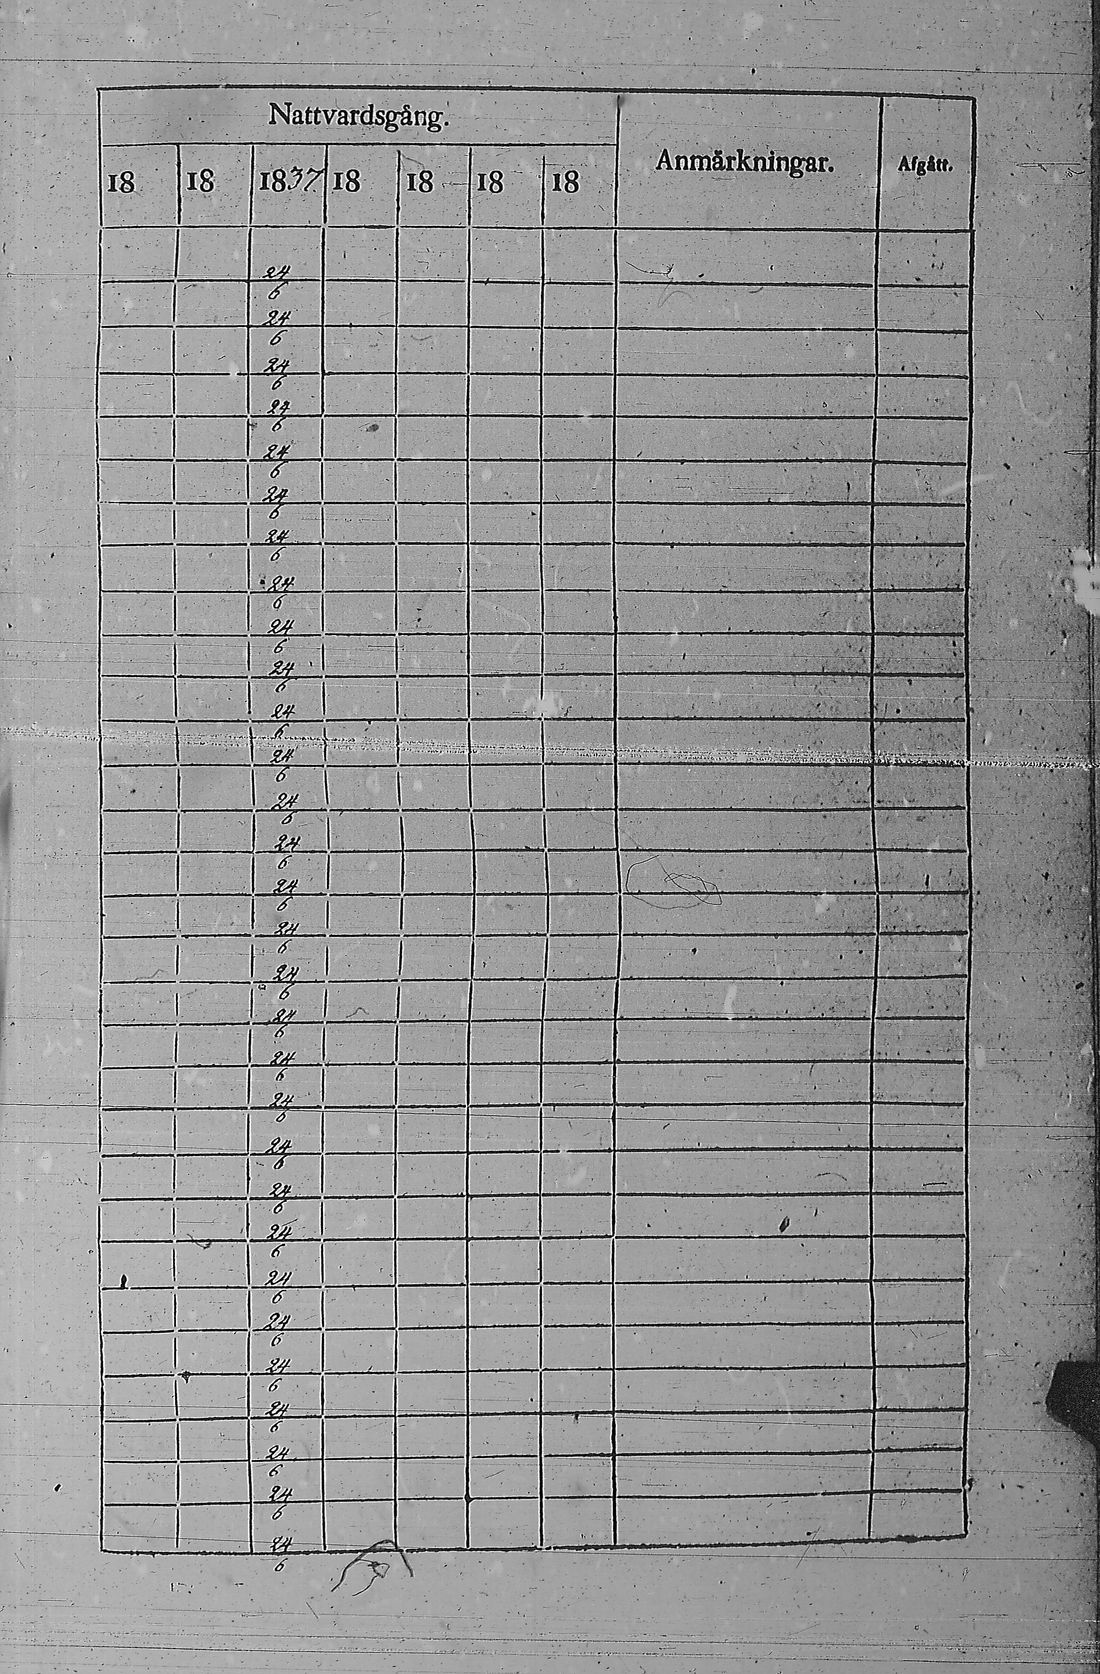 Nattvardsgång.
Anmärkningar.
Afgått.
18 18 1837 18 18 18 18
24
6
24
6
24
6
24
6
24
6
24
6
24
6
24
6
24
6
24
6
24
6
24
6
24
6
24
6
24
6
24
6
24
6
24
6
24
6
24
6
24
6
24
6
24
6
24
6
24
6
24
6
24
6
24
6
24
6
24
6